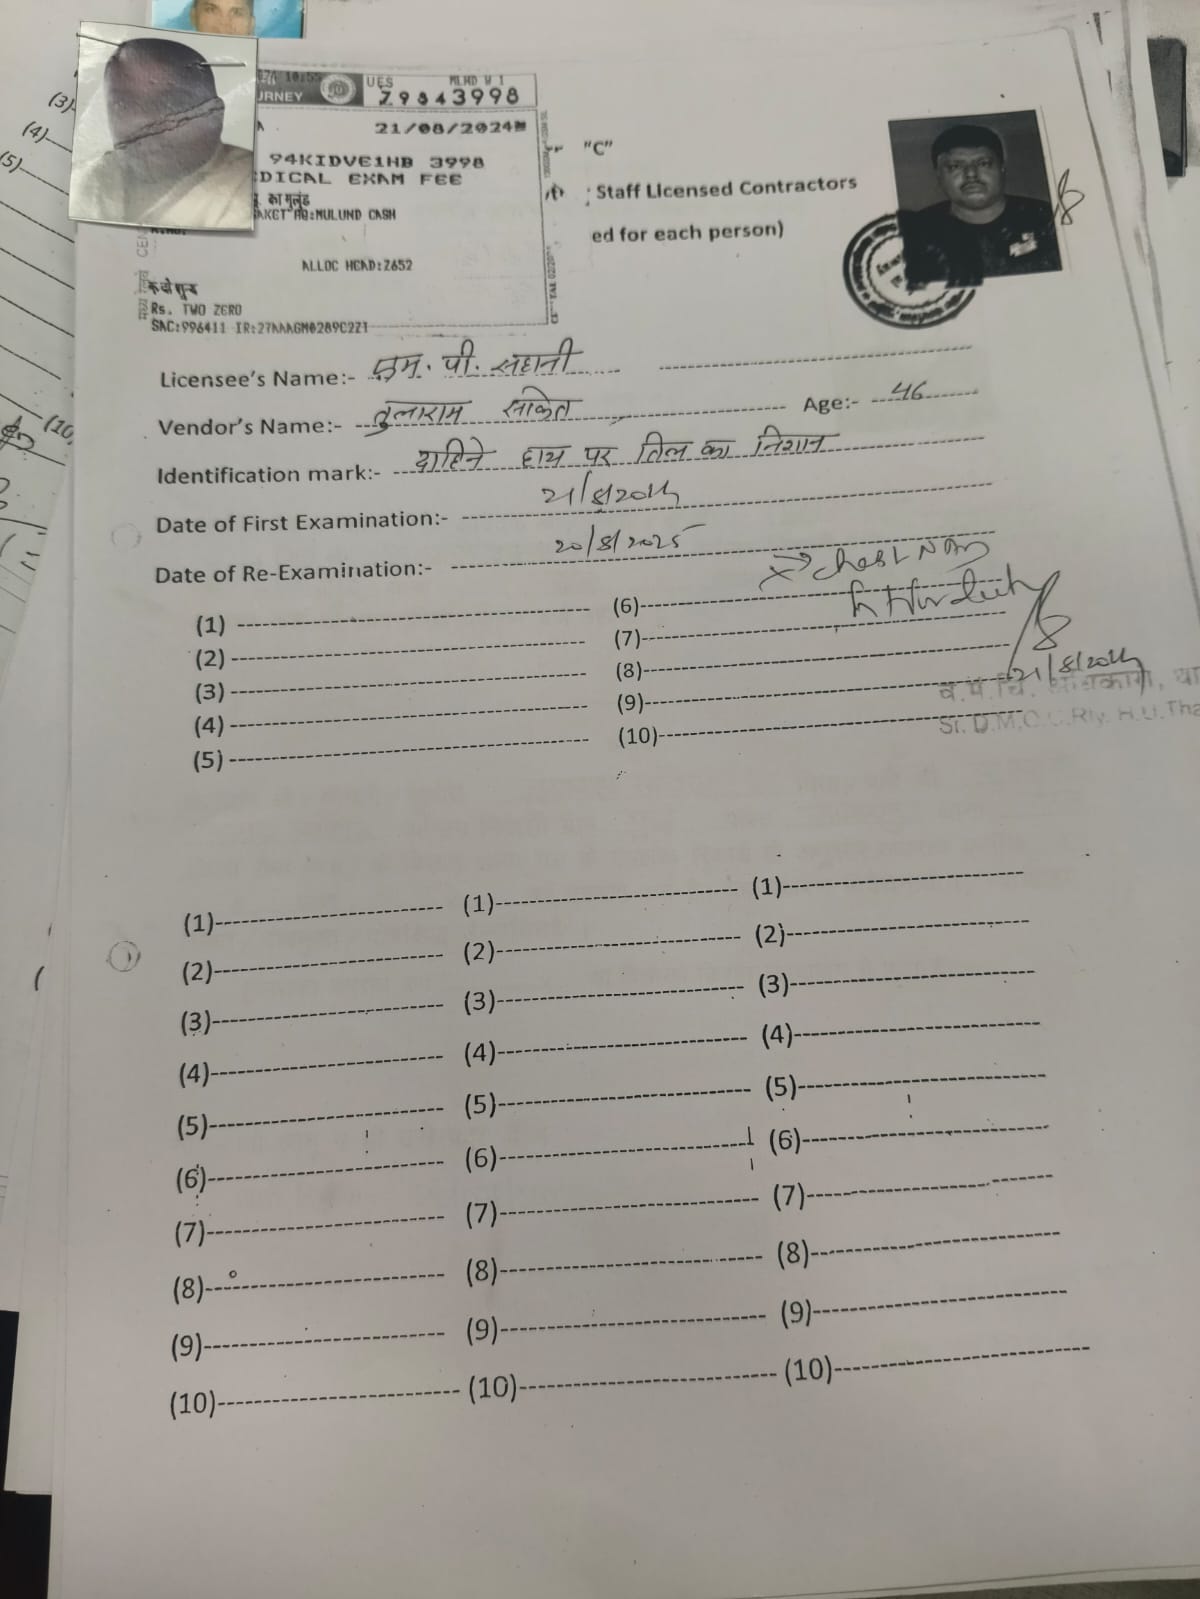 (3)
(4)
(5)
(10)
10:55
URNEY
UES
MLHD W 1
Z9843998
21/08/2024
94KIDVE1HB 3998
DICAL EXAM FEE
का मुलुंड
MULUND CASH
ALLOC HEAD:2652
Rs. TWO ZERO
SAC:996411 IR:27AAAGM0289C2Z1
"C"
Staff Licensed Contractors
ed for each person)
Licensee's Name:- एम. पी. सहानी
Vendor's Name:- तुलाराम साकेत Age:- 46
Identification mark:- दाहिने हाथ पर तिल का निशान
Date of First Examination:- 21/8/2024
Date of Re-Examination:- 20/8/2025
Chest NAD
(1) (6)
(2) (7)
(3) (8)
21/8/2024
(4) (9)
(5) (10)
Sr. D.M.O.C.Rly. H.U.Tha
(1) (1) (1)
(2) (2) (2)
(3) (3) (3)
(4) (4) (4)
(5) (5) (5)
(6) (6) (6)
(7) (7) (7)
(8) (8) (8)
(9) (9) (9)
(10) (10) (10)